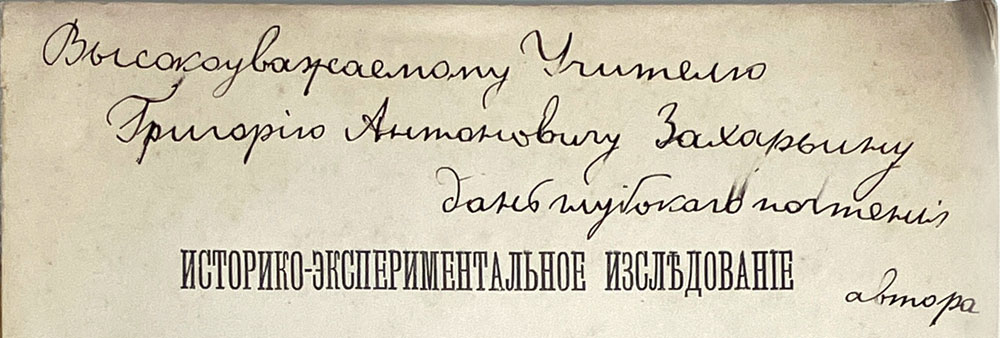 Высокоуважаемому Учителю
Григорію Антоновичу Захарьину
дань глубокаго почтенія
ИСТОРИКО-ЭКСПЕРИМЕНТАЛЬНОЕ ИЗСЛѢДОВАНІЕ
автора